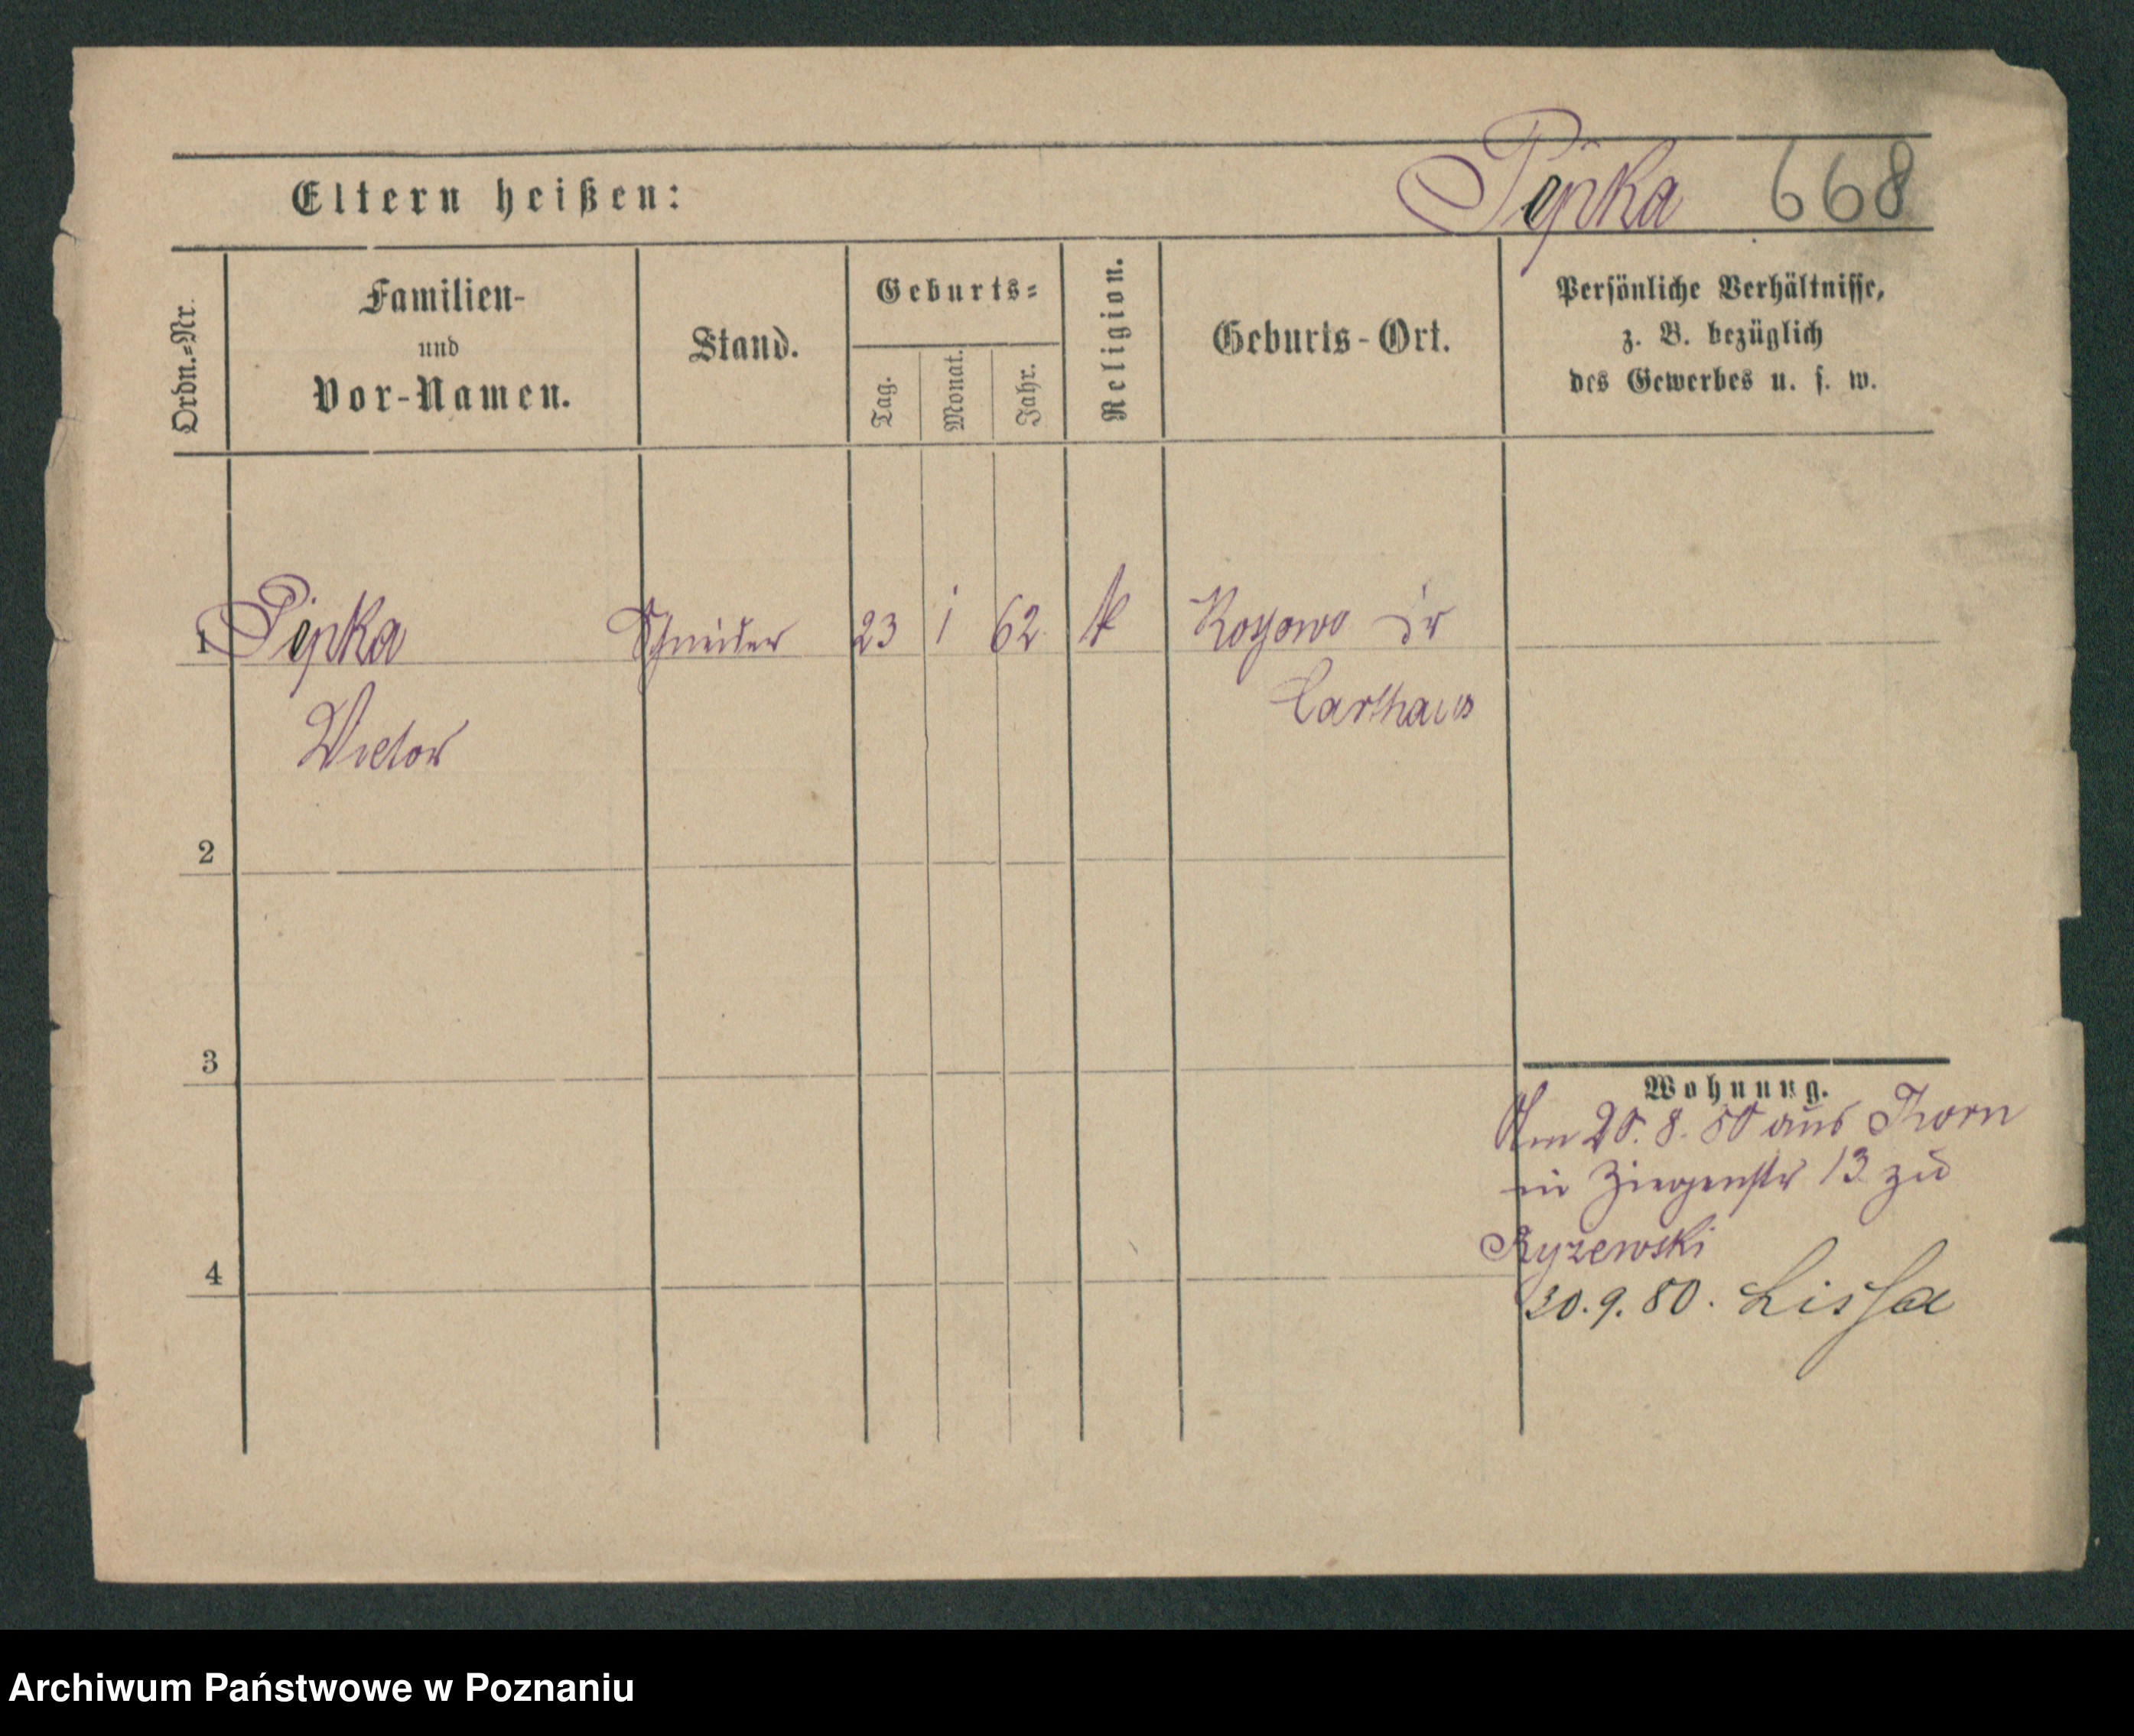 Pepka 668
Eltern heißen:
Ordn.-Nr.
Familien-
und
Vor-Namen.
Stand.
Geburts-
Tag.
Monat.
Jahr.
Religion.
Geburts-Ort.
Persönliche Verhältnisse,
z. B. bezüglich
des Gewerbes u. s. w.
1 Pepka Schneider 23 1 62 k
Victor Carthaus
2
3
4
Wohnung.
Am 20. 8. 80 aus Thorn
in Ziegenstr 13 zu
Ryzewski
30.9.80. Lissa
Archiwum Państwowe w Poznaniu